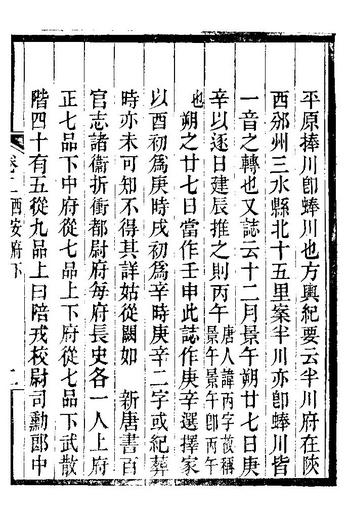 平原捧川卽蜯川也方輿紀要云半川府在陝
西邠州三水縣北十五里案半川亦卽蜯川皆
一音之轉也又誌云十二月景午朔廿七日庚
辛以逐日建辰推之則丙午唐人諱丙字故稱
景午景午卽丙午
也朔之廿七日當作壬申此誌作庚辛選擇家
以酉初爲庚時戌初爲辛時庚辛二字或紀葬
時亦未可知不得其詳姑從闕如 新唐書百
官志諸衞折衝都尉府每府長史各一人上府
正七品下中府從七品上下府從七品下武散
階四十有五從九品上曰陪戎校尉司勳郎中
卷二西安府下